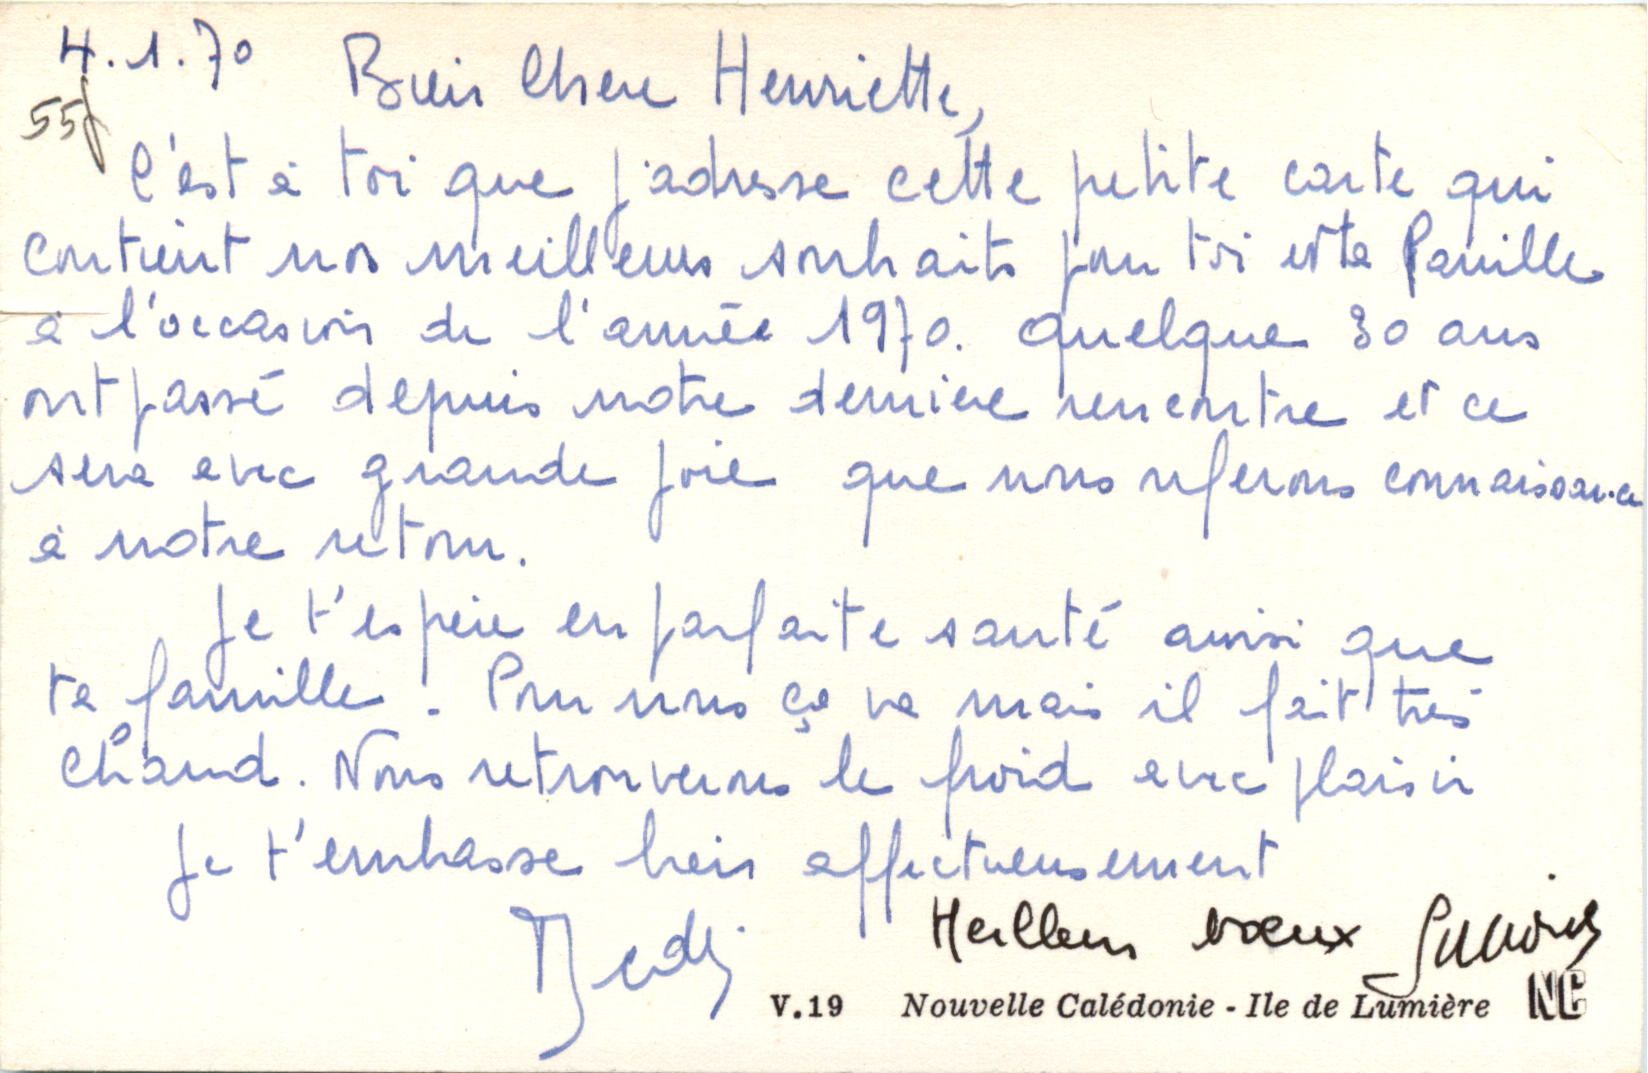 4.1.70 Bien Chere Henriette,
55f
C'est à toi que j'adresse cette petite carte qui
contient nos meilleurs souhaits pour toi et ta famille
à l'occasion de l'année 1970. Quelque 30 ans
ont passé depuis notre derniere rencontre et ce
sera avec grande joie que nous referons connaissance
à notre retour.
Je t'espère en parfaite santé ainsi que
ta famille. Pour nous ça va mais il fait très
chaud. Nous retrouverons le froid avec plaisir
Je t'embrasse bien affectueusement
Meilleurs voeux
V.19 Nouvelle Calédonie - Ile de Lumière NC